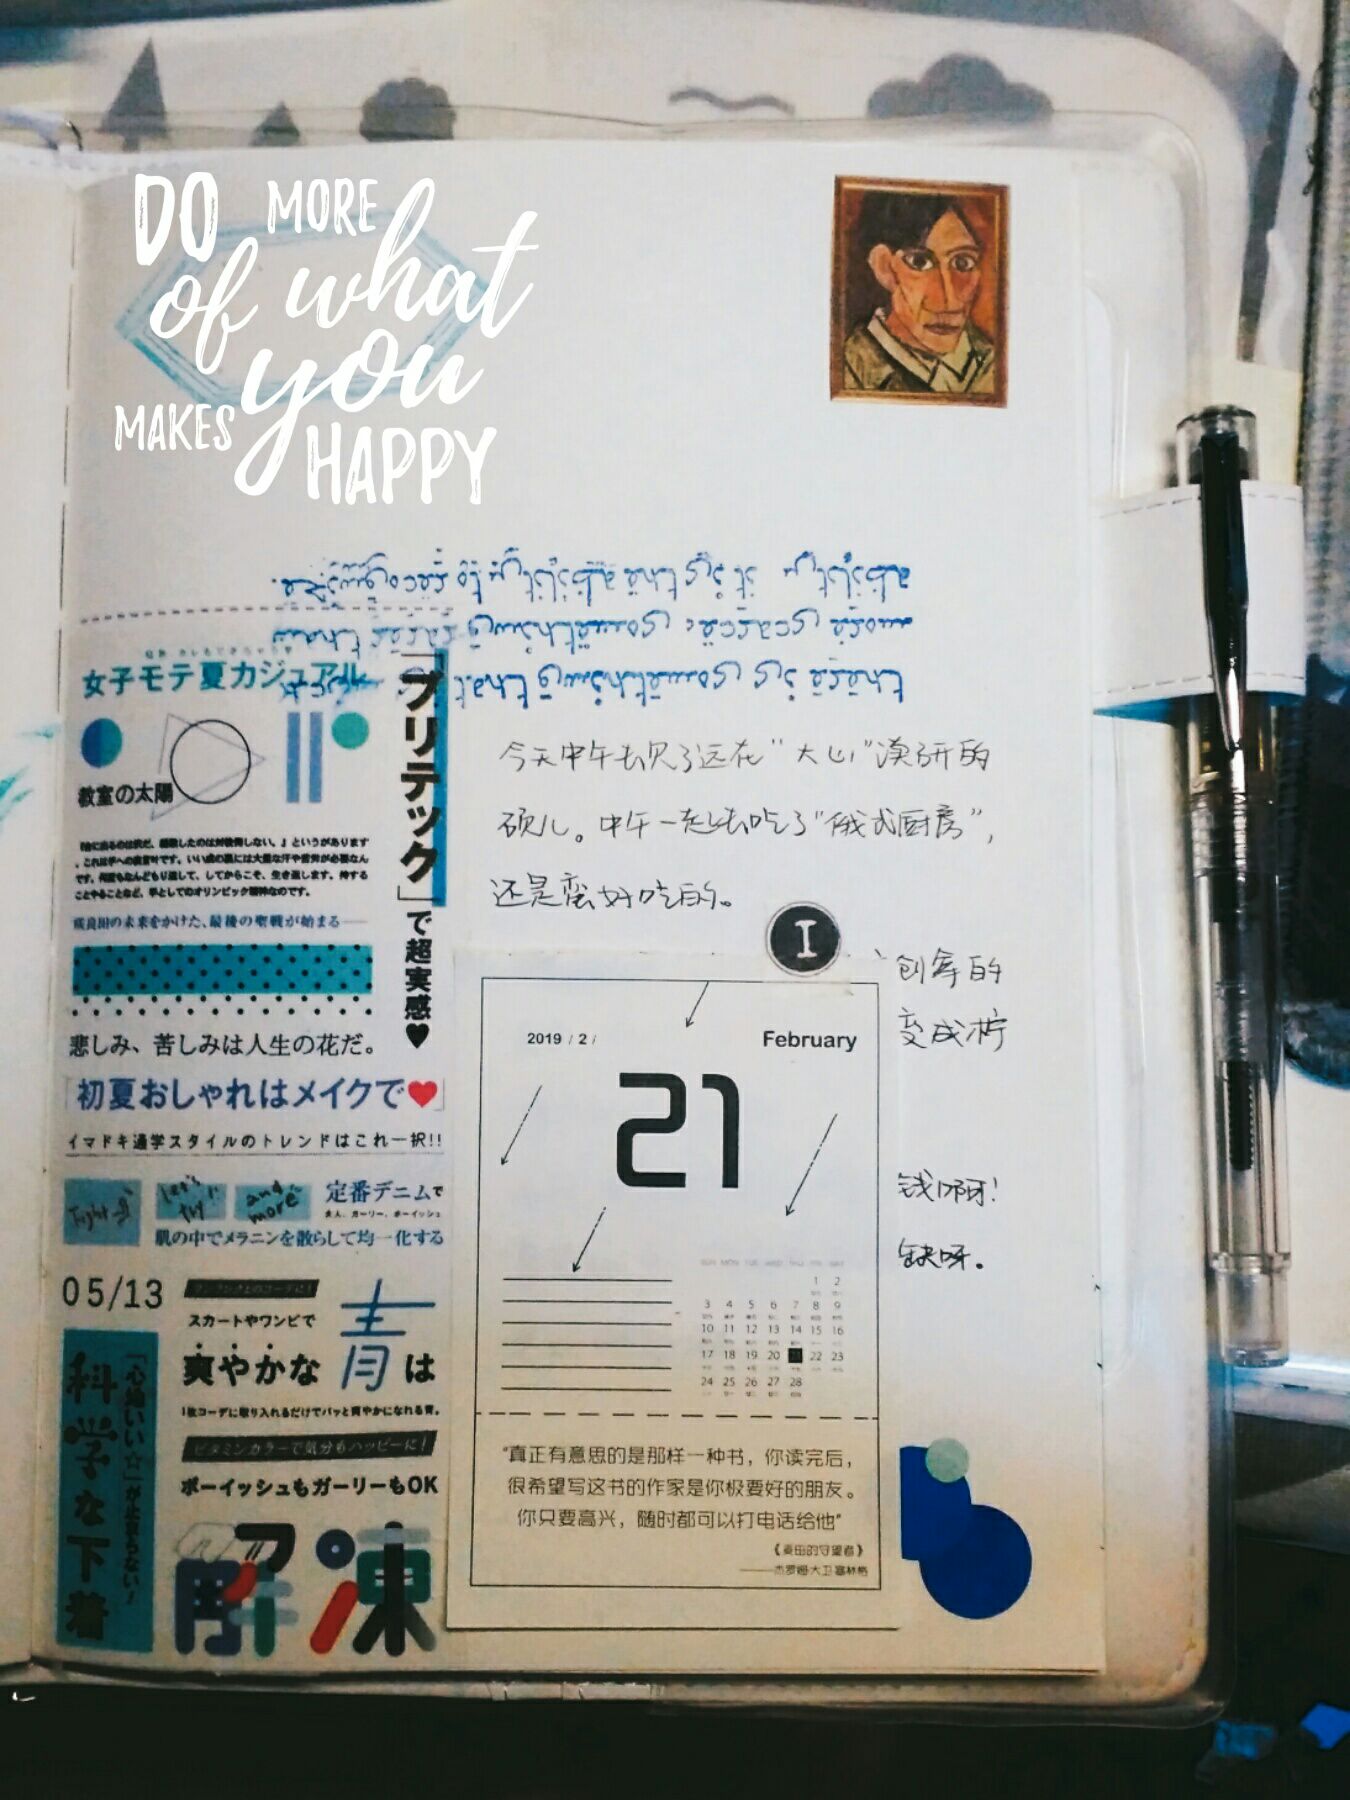 DO MORE
of what
you
MAKES
HAPPY
there is something that
more scarce something rarer than
ability it is the ability to recognize.
女子モテ夏カジュアル
「プリテック」で超実感♥
教室の太陽
成長期の未来をかけた、最後の聖戦が始まる
悲しみ、苦しみは人生の花だ。
「初夏おしゃれはメイクで♥」
イマドキ通学スタイルのトレンドはこれ一択!!
Let's try!!
and more
定番デニムで
大人、ガーリー、ボーイッシュ
肌の中でメラニンを散らして均一化する
05/13
スカートやワンピで
爽やかな青は
1枚コーデに取り入れるだけでパッと爽やかになれる青。
ビタミンカラーで気分もハッピーに!
ボーイッシュもガーリーもOK
科学な下着
解凍
今天中午去见了远在“大山”读研的
硕儿。中午一起去吃了“俄式厨房”,
还是蛮好吃的。
I
变成柠
钱啊呀!
缺呀。
2019 / 2 /
February
21
SUN MON TUE WED THU FRI SAT
1 2
3 4 5 6 7 8 9
10 11 12 13 14 15 16
17 18 19 20 21 22 23
24 25 26 27 28
“真正有意思的是那样一种书，你读完后，
很希望写这书的作家是你极要好的朋友。
你只要高兴，随时都可以打电话给他”
《麦田的守望者》
———杰罗姆·大卫·塞林格